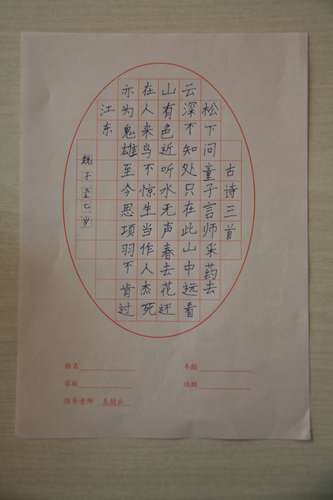 古诗三首
松下问童子言师采药去
云深不知处只在此山中远看
山有色近听水无声春去花还
在人来鸟不惊生当作人杰死
亦为鬼雄至今思项羽不肯过
江东
魏子 七岁
姓名 年龄
学校
指导老师